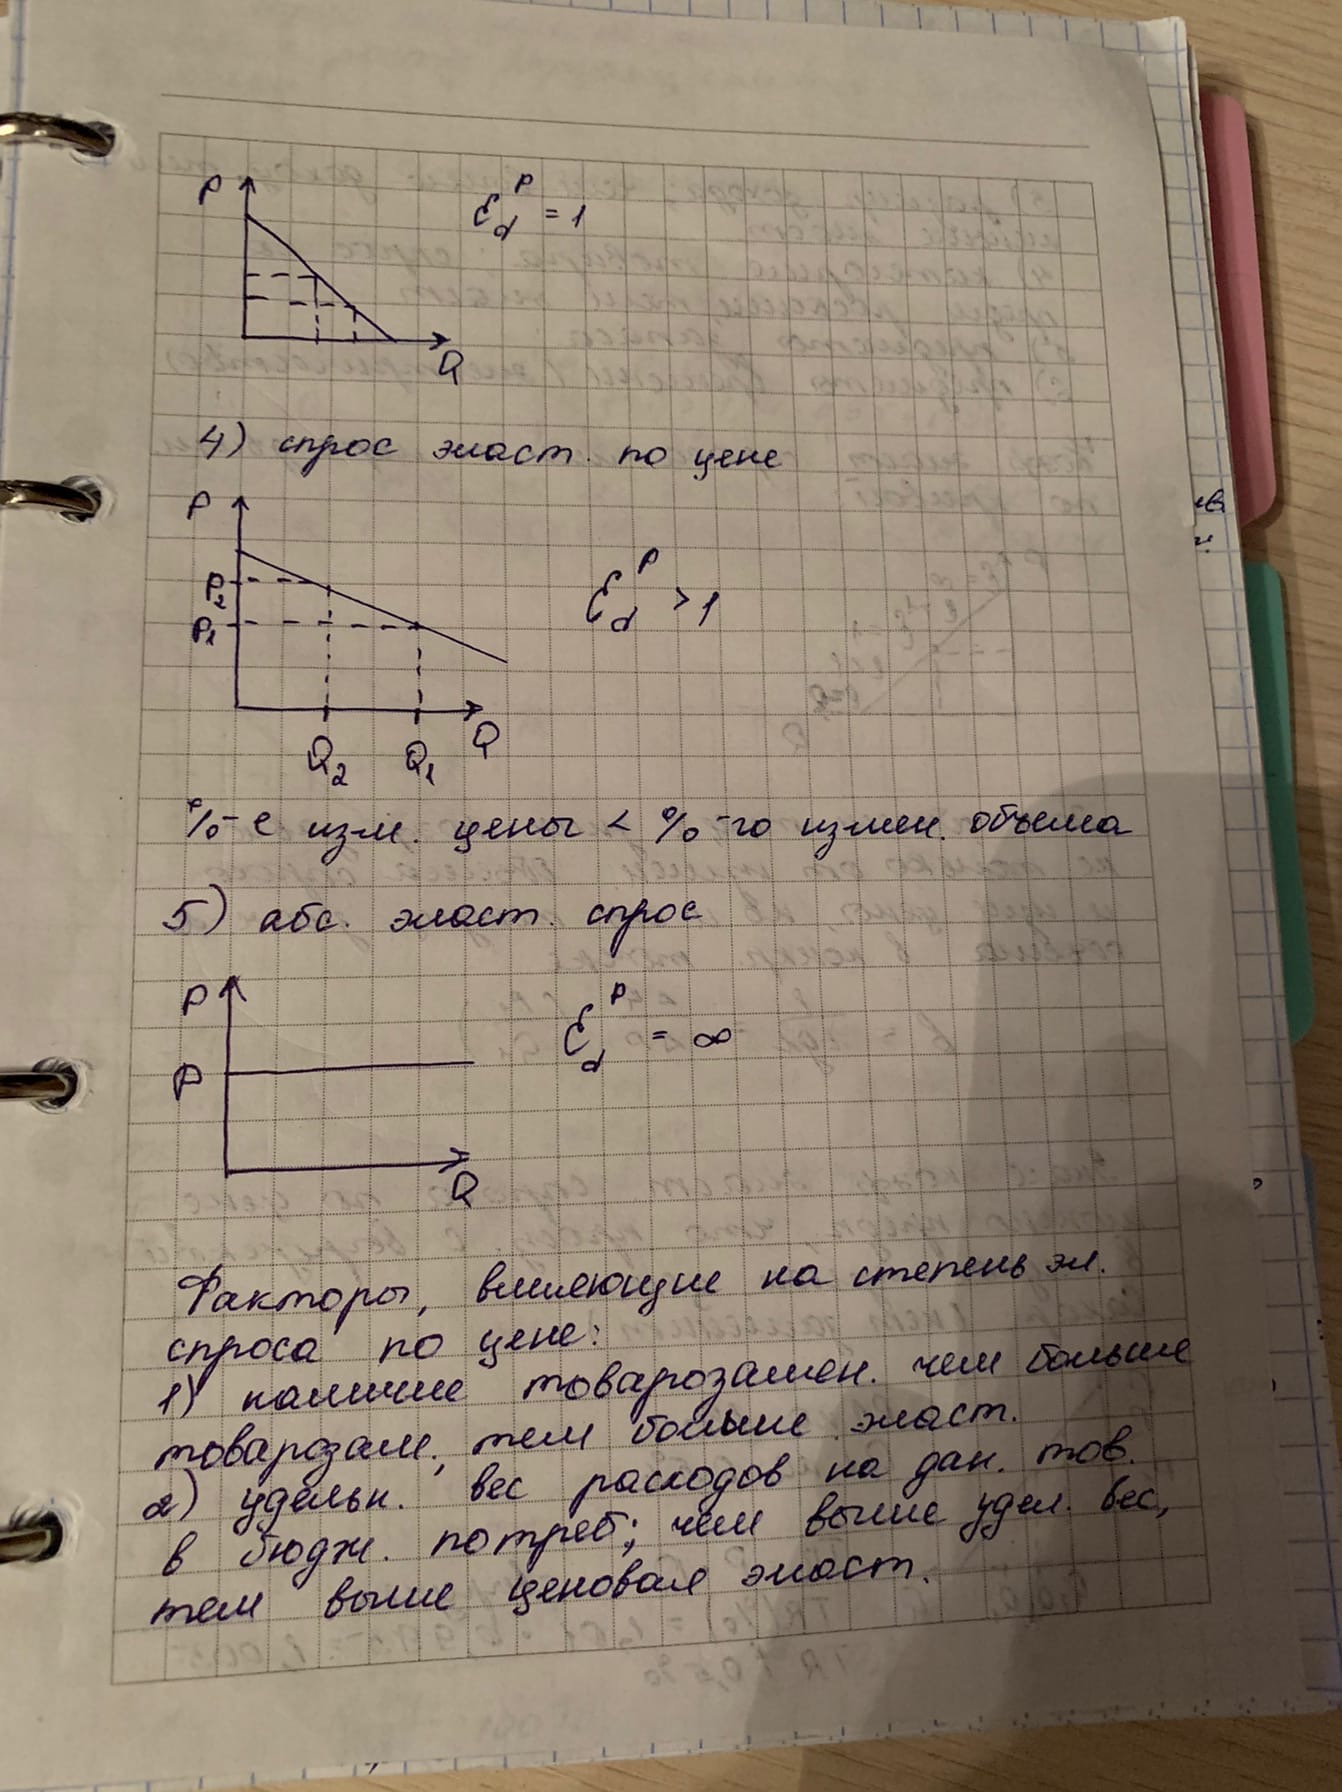 P
Ɛdᴾ = 1
Q
4) спрос эласт. по цене
P
P₂
P₁
Ɛdᴾ > 1
Q₂ Q₁ Q
%-е изм. цены < %-го измен. объема
5) абс. эласт. спрос
P
Ɛdᴾ = ∞
P
Q
Факторы, влияющие на степень эл.
спроса по цене:
1) наличие товарозамен. чем больше
товарозам., тем больше эласт.
2) удельн. вес расходов на дан. тов.
в бюдж. потреб; чем выше удел. вес,
тем выше ценовая эласт.